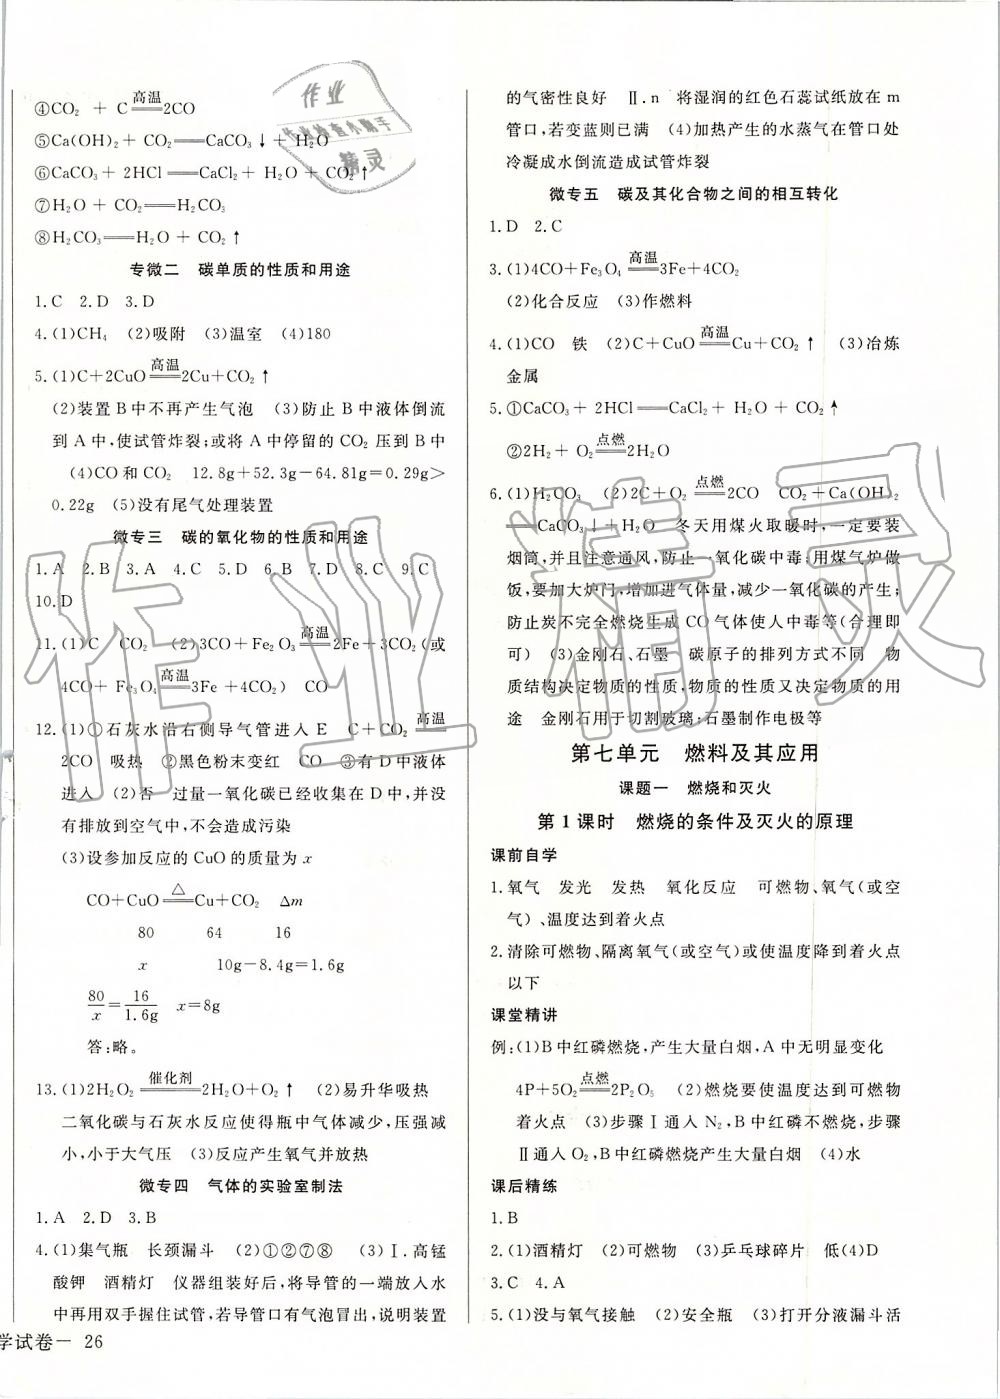 ④CO₂ + C ══高温══ 2CO
⑤Ca(OH)₂+CO₂══CaCO₃↓+ H₂O
⑥CaCO₃+2HCl══CaCl₂+H₂O+CO₂↑
⑦H₂O + CO₂══H₂CO₃
⑧H₂CO₃══H₂O + CO₂↑
专微二 碳单质的性质和用途
1.C 2.D 3.D
4.(1)CH₄ (2)吸附 (3)温室 (4)180
5.(1)C+2CuO ══高温══ 2Cu+CO₂↑
(2)装置B中不再产生气泡 (3)防止B中液体倒流
到A中,使试管炸裂;或将A中停留的CO₂压到B中
(4)CO和CO₂ 12.8g+52.3g-64.81g=0.29g>
0.22g (5)没有尾气处理装置
微专三 碳的氧化物的性质和用途
1.A 2.B 3.A 4.C 5.D 6.B 7.D 8.C 9.C
10.D
11.(1)C CO₂ (2)3CO+Fe₂O₃ ══高温══ 2Fe+3CO₂(或
4CO+Fe₃O₄ ══高温══ 3Fe+4CO₂) CO
12.(1)①石灰水沿右侧导气管进入E C+CO₂ ══高温══
2CO 吸热 ②黑色粉末变红 CO₂ ③有D中液体
进入 (2)否 过量一氧化碳已经收集在D中,并没
有排放到空气中,不会造成污染
(3)设参加反应的CuO的质量为x
CO+CuO ══△══ Cu+CO₂ Δm
80 64 16
x 10g-8.4g=1.6g
80/x=16/1.6g x=8g
答:略。
13.(1)2H₂O₂ ══催化剂══ 2H₂O+O₂↑ (2)易升华吸热
二氧化碳与石灰水反应使得瓶中气体减少,压强减
小,小于大气压 (3)反应产生氧气并放热
微专四 气体的实验室制法
1.A 2.D 3.B
4.(1)集气瓶 长颈漏斗 (2)①②⑦⑧ (3)Ⅰ.高锰
酸钾 酒精灯 仪器组装好后,将导管的一端放入水
中再用双手握住试管,若导管口有气泡冒出,说明装置
学试卷一 26
的气密性良好 Ⅱ.n 将湿润的红色石蕊试纸放在m
管口,若变蓝则已满 (4)加热产生的水蒸气在管口处
冷凝成水倒流造成试管炸裂
微专五 碳及其化合物之间的相互转化
1.D 2.C
3.(1)4CO+Fe₃O₄ ══高温══ 3Fe+4CO₂
(2)化合反应 (3)作燃料
4.(1)CO 铁 (2)C+CuO ══高温══ Cu+CO₂↑ (3)冶炼
金属
5.①CaCO₃+2HCl══CaCl₂+H₂O+CO₂↑
②2H₂+O₂ ══点燃══ 2H₂O
6.(1)H₂CO₃ (2)2C+O₂ ══点燃══ 2CO CO₂+Ca(OH)₂
══CaCO₃↓+H₂O 冬天用煤火取暖时,一定要装
烟筒,并且注意通风,防止一氧化碳中毒;用煤气炉做
饭,要加大炉门,增加进气体量,减少一氧化碳的产生;
防止炭不完全燃烧生成CO气体使人中毒等(合理即
可) (3)金刚石、石墨 碳原子的排列方式不同 物
质结构决定物质的性质,物质的性质又决定物质的用
途 金刚石用于切割玻璃;石墨制作电极等
第七单元 燃料及其应用
课题一 燃烧和灭火
第1课时 燃烧的条件及灭火的原理
课前自学
1.氧气 发光 发热 氧化反应 可燃物、氧气(或空
气)、温度达到着火点
2.清除可燃物、隔离氧气(或空气)或使温度降到着火点
以下
课堂精讲
例:(1)B中红磷燃烧,产生大量白烟,A中无明显变化
4P+5O₂ ══点燃══ 2P₂O₅ (2)燃烧要使温度达到可燃物
着火点 (3)步骤Ⅰ通入N₂,B中红磷不燃烧,步骤
Ⅱ通入O₂,B中红磷燃烧产生大量白烟 (4)水
课后精练
1.B
2.(1)酒精灯 (2)可燃物 (3)乒乓球碎片 低(4)D
3.C 4.A
5.(1)没与氧气接触 (2)安全瓶 (3)打开分液漏斗活
作业
精灵
作业精灵